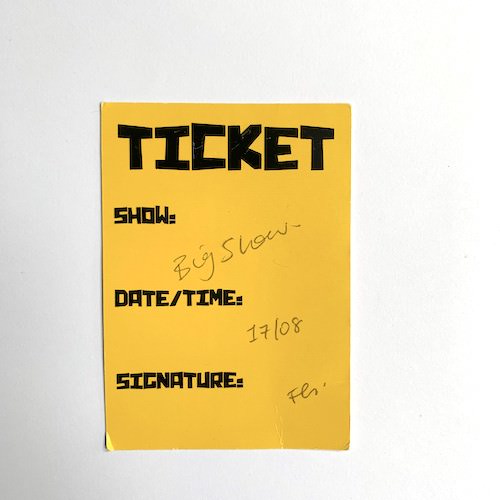 TICKET
SHOW:
Big Show.
DATE/TIME:
17/08
SIGNATURE: